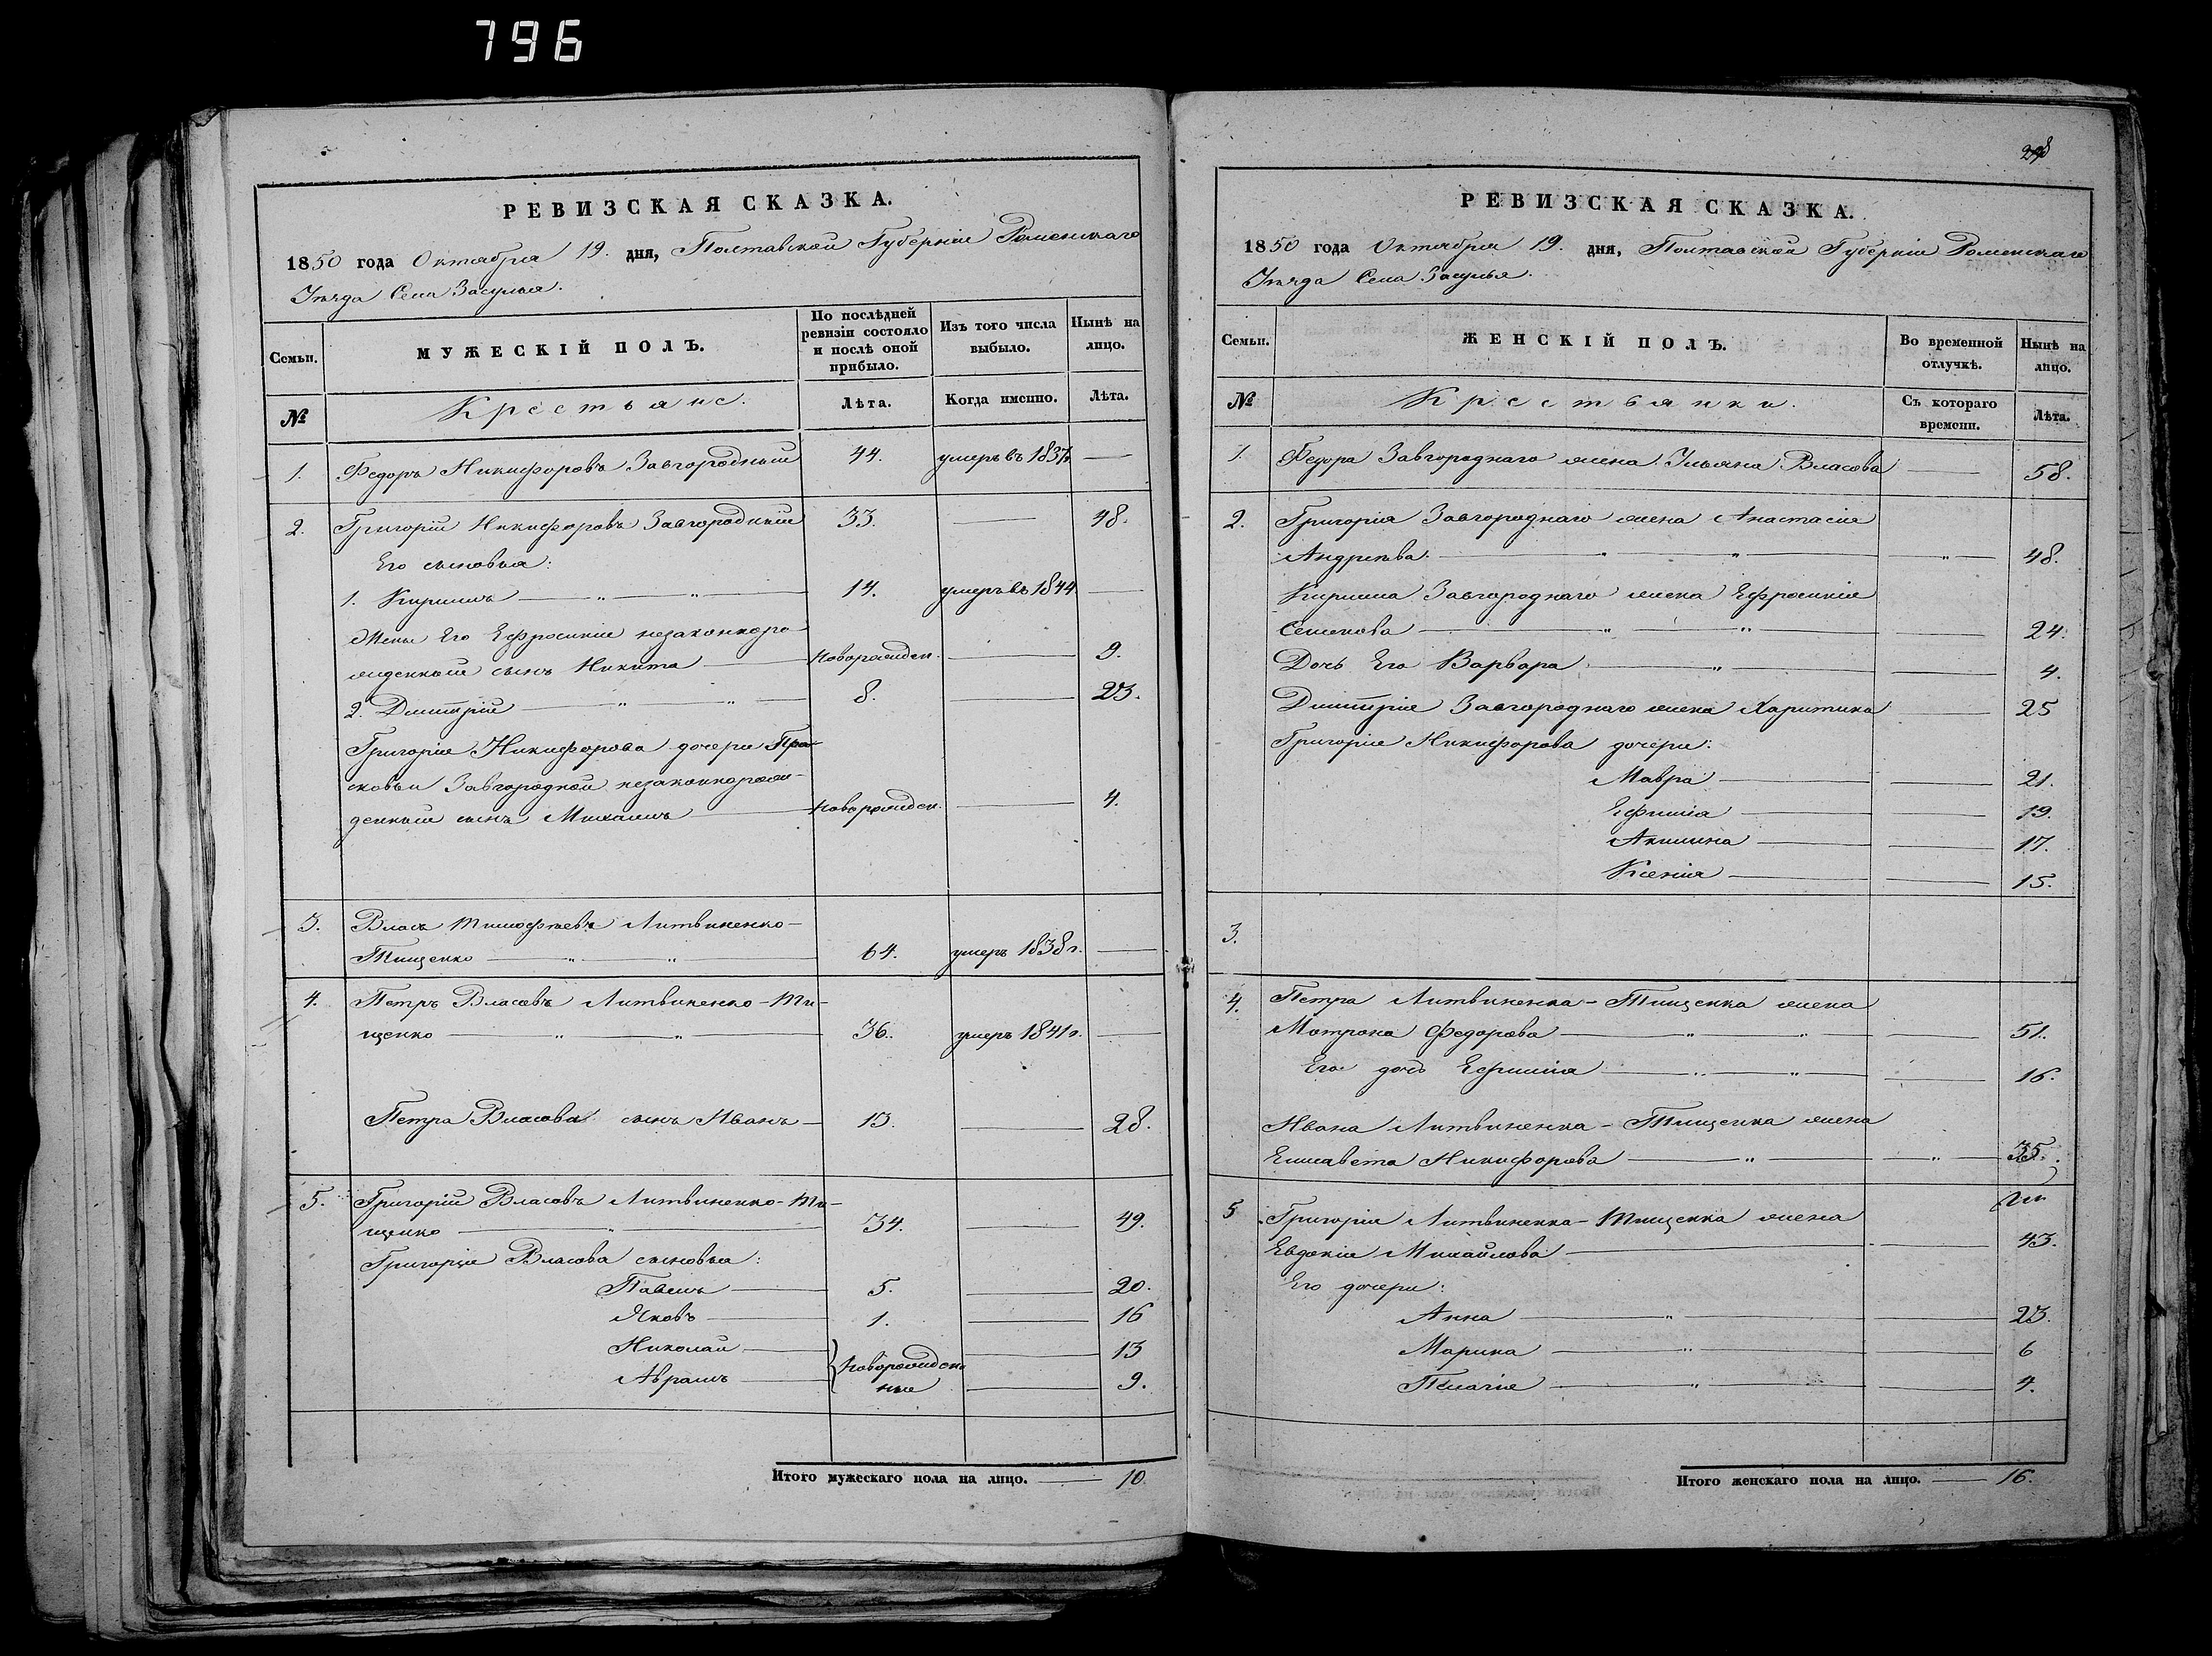 796
РЕВИЗСКАЯ СКАЗКА.
1850 года Октября 19. дня, Полтавской Губерніи Роменскаго
Уѣзда Села Засулья.
Семьи. МУЖЕСКІЙ ПОЛЪ. По послѣдней ревизіи состояло и послѣ оной прибыло. Изъ того числа выбыло. Нынѣ на лицо.
№ Крестьяне. Лѣта. Когда именно. Лѣта.
1. Федоръ Никифоровъ Завгородный 44. умеръ въ 1837г. —
2. Григорій Никифоровъ Завгородный 33. — 48.
Его сыновья:
1. Кирилъ — " — " — 14. умеръ въ 1844 —
Жены Его Ефросиніи незаконноро-
жденный сынъ Никита — Новорожден. — 9.
2. Димитрій — " — " — 8. — 23.
Григорія Никифорова дочери Пра-
сковьи Завгородной незаконнорож-
денный сынъ Михаилъ — Новорожден. — 4.
3. Власъ Тимофѣевъ Литвиненко-
Тищенко — " — " — 64. умеръ 1838г. —
4. Петръ Власовъ Литвиненко-Ти-
щенко — " — " — 36. умеръ 1841г. —
Петра Власова сынъ Иванъ — 13. — 28.
5. Григорій Власовъ Литвиненко-Ти-
щенко — " — 34. — 49.
Григорія Власова сыновья:
Павелъ — 5. — 20.
Яковъ — 1. — 16
Николай — Новорожден — 13
Аврамъ — ные — 9.
Итого мужескаго пола на лицо. — 10.
298
РЕВИЗСКАЯ СКАЗКА.
1850 года Октября 19. дня, Полтавской Губерніи Роменскаго
Уѣзда Села Засулья.
Семьи. ЖЕНСКІЙ ПОЛЪ. Во временной отлучкѣ. Нынѣ на лицо.
№ Крестьянки. Съ котораго времени. Лѣта.
1. Федора Завгороднаго жена Ульяна Власова — 58.
2. Григорія Завгороднаго жена Анастасія
Андреева — " — " — " — 48.
Кирила Завгороднаго жена Ефросинія
Семенова — " — " — 24.
Дочь Его Варвара — " — 4.
Димитрія Завгороднаго жена Харитина — 25
Григорія Никифорова дочери:
Мавра — 21.
Ефимія — 19.
Акилина — 17.
Ксенія — 15.
3.
4. Петра Литвиненка-Тищенка жена
Мотрона Федорова — " — " — 51.
Его дочь Ефимія — " — " — 16.
Ивана Литвиненка-Тищенка жена
Елисавета Никифорова — " — " — 35.
5 Григорія Литвиненка-Тищенка жена
Евдокія Михайлова — 43.
Его дочери:
Анна — " — 23.
Марина — " — 6
Пелагія — " — 4.
Итого женскаго пола на лицо. — 16.